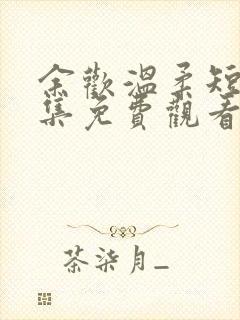 余歡溫柔短
集免費觀看
茶柒月_